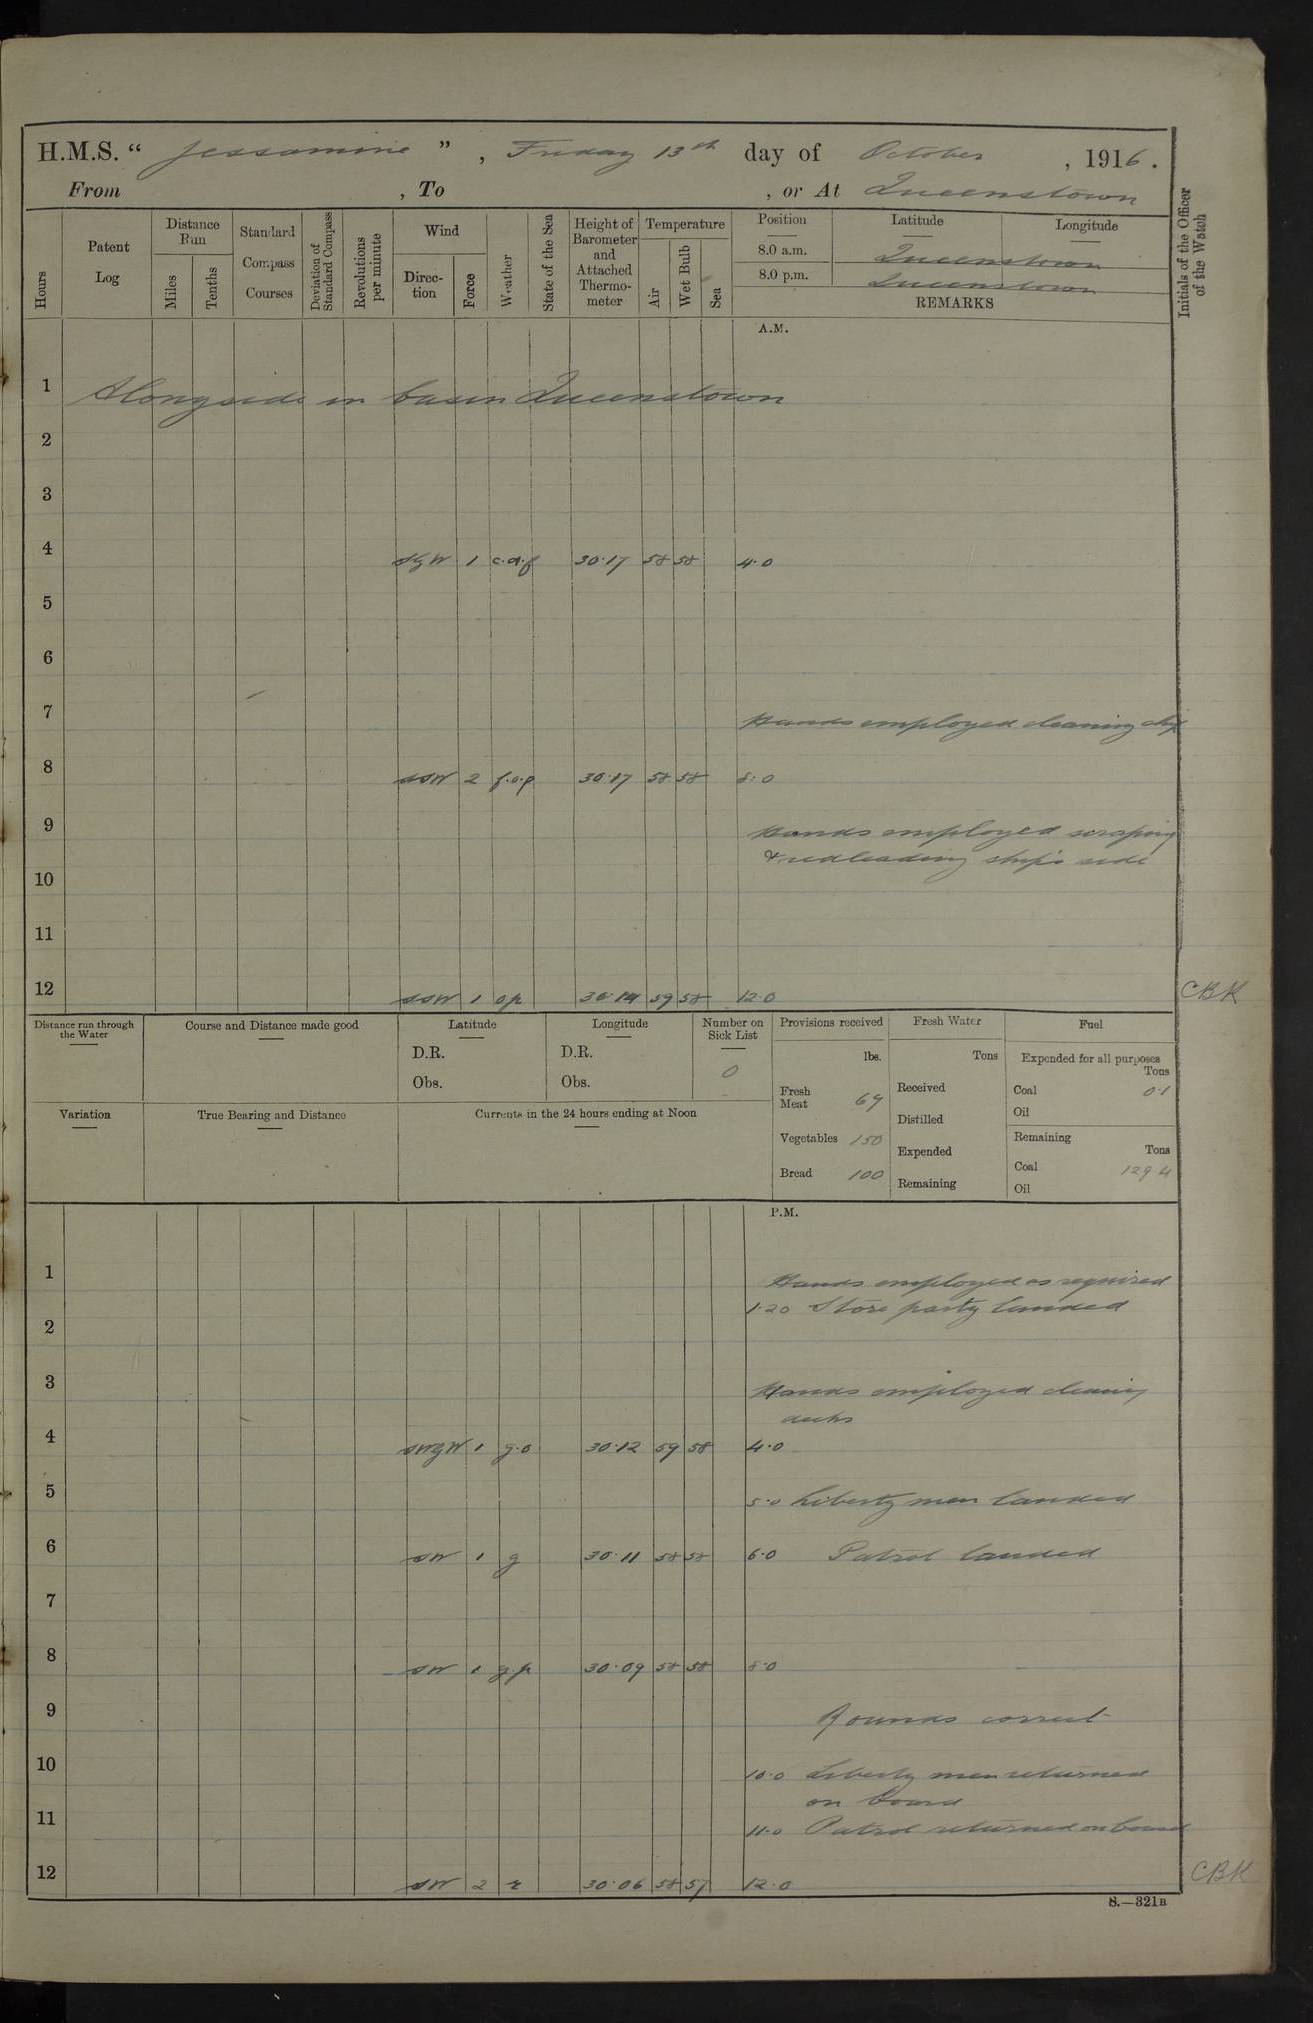 H.M.S. “ Jessamine ” , Friday 13th day of October , 1916 .
From , To , or At Queenstown
Hours
Patent Log
Distance Run
Miles
Tenths
Standard Compass Courses
Deviation of Standard Compass
Revolutions per minute
Wind
Direction
Force
Weather
State of the Sea
Height of Barometer and Attached Thermometer
Temperature
Air
Wet Bulb
Sea
Position Latitude Longitude
8.0 a.m. Queenstown
8.0 p.m. Queenstown
REMARKS
Initials of the Officer of the Watch
A.M.
1 Alongside in basin Queenstown
2
3
4 SbyW 1 c.d.f 30.17 58 58 4.0
5
6
7 Hands employed cleaning ship
8 SSW 2 f.o.p 30.17 58 58 8.0
9 Hands employed scraping
& redleading ship's side
10
11
12 SSW 1 op 30.14 59 58 12.0 CBK
Distance run through the Water
Course and Distance made good
Latitude
D.R.
Obs.
Longitude
D.R.
Obs.
Number on Sick List
0
Provisions received
lbs.
Fresh Meat 69
Vegetables 150
Bread 100
Fresh Water
Tons
Received
Distilled
Expended
Remaining
Fuel
Expended for all purposes
Tons
Coal 0.1
Oil
Remaining
Tons
Coal 129.4
Oil
Variation
True Bearing and Distance
Currents in the 24 hours ending at Noon
P.M.
1 Hands employed as required
1.20 Store party landed
2
3 Hands employed cleaning
decks
4 SWbyW 1 g.o 30.12 59 58 4.0
5 5.0 Liberty men landed
6 SW 1 g 30.11 58 58 6.0 Patrol landed
7
8 SW 1 g.p 30.09 58 58 8.0
9 Rounds correct
10 10.0 Liberty men returned
on board
11 11.0 Patrol returned on board
12 SW 2 r 30.06 58 57 12.0 CBK
S.—321B